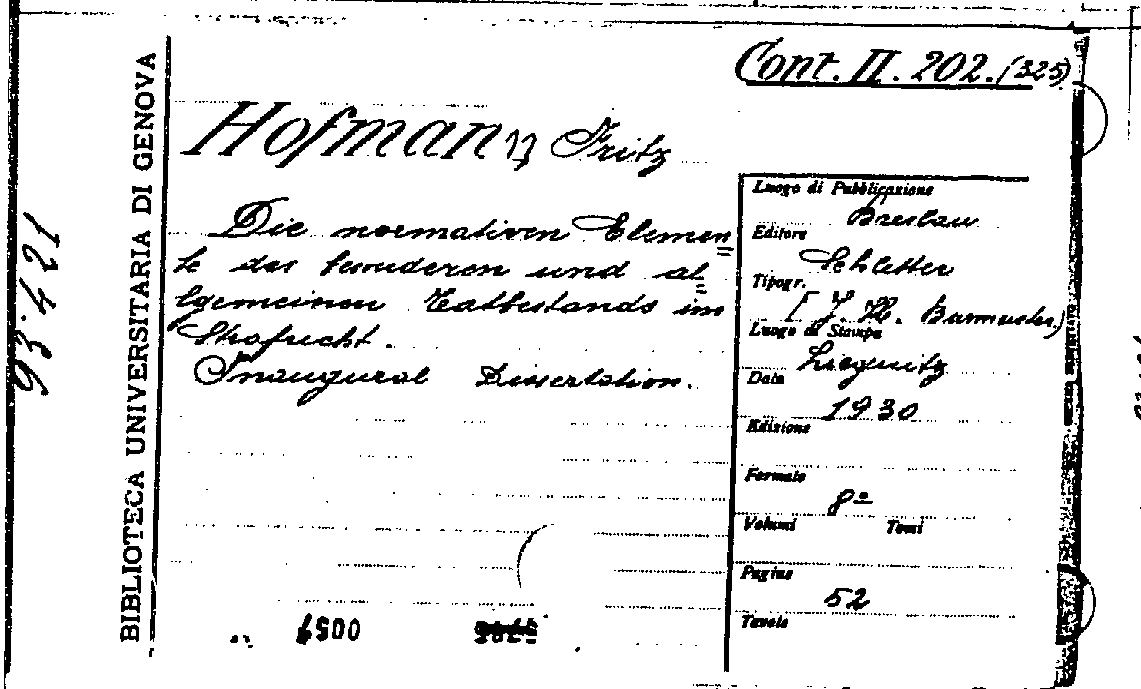 Cont. II. 202. (325)
BIBLIOTECA UNIVERSITARIA DI GENOVA
93.421
Hofmann Fritz
Die normativen Elemen=
te des besonderen und al=
lgemeinen Tatbestands im
Strafrecht.
Inaugural Dissertation.
Luogo di Pubblicazione
Breslau
Editore
Schletter
Tipogr.
Luogo di Stampa
Liegnitz
Data
1930
Edizione
Formato
8º
Volumi Tomi
Pagine
52
Tavole